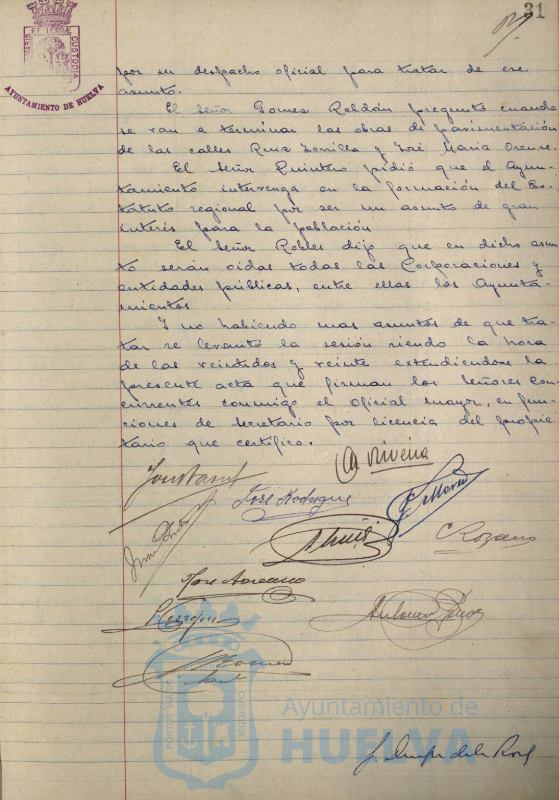 31
AYUNTAMIENTO DE HUELVA
por su despacho oficial para tratar de ese
asunto.
El Señor Gomez Roldán pregunto cuando
se van a terminar las obras de pavimentación
de las calles Ruiz Zorrilla y José Maria Orense.
El Señor Quintero pidió que el Ayun-
tamiento intervenga en la formación del Es-
tatuto regional por ser un asunto de gran
interés para la población
El Señor Robles dijo que en dicho asun-
to serán oidas todas las Corporaciones y
entidades públicas, entre ellas los Ayunta-
mientos
Y no habiendo mas asuntos de que tra-
tar se levantó la sesión siendo la hora
de las veintidos y veinte extendiendose la
presente acta que firman los señores con-
currentes conmigo el Oficial mayor, en fun-
ciones de Secretario por licencia del propie-
tario que certifico.
José Rodriguez
Ayuntamiento de
HUELVA